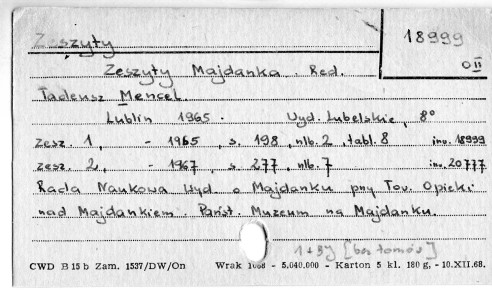 Zeszyty
18999
O II
Zeszyty Majdanka. Red.
Tadeusz Mencel.
Lublin 1965. Wyd. Lubelskie, 8°
Zesz. 1, - 1965, s. 198, nlb. 2, tabl. 8 inw. 18999
Zesz. 2, - 1967, s. 277, nlb. 7 inw. 20777
Rada Naukowa Wyd. o Majdanku przy Tow. Opieki
nad Majdankiem. Państ. Muzeum na Majdanku.
CWD B 15 b Zam. 1537/DW/On Wrak - 5.040.000 - Karton 5 kl. 180 g, - 10.XII.68.